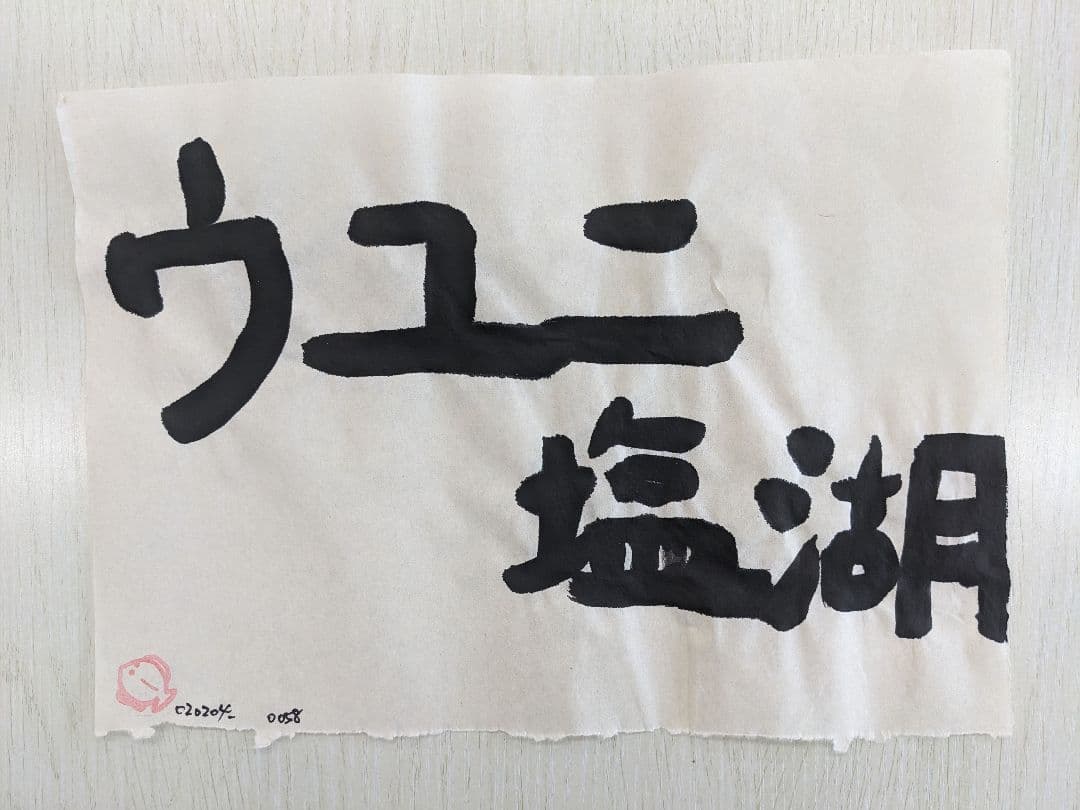 ウユニ
塩湖
c20204- 0058